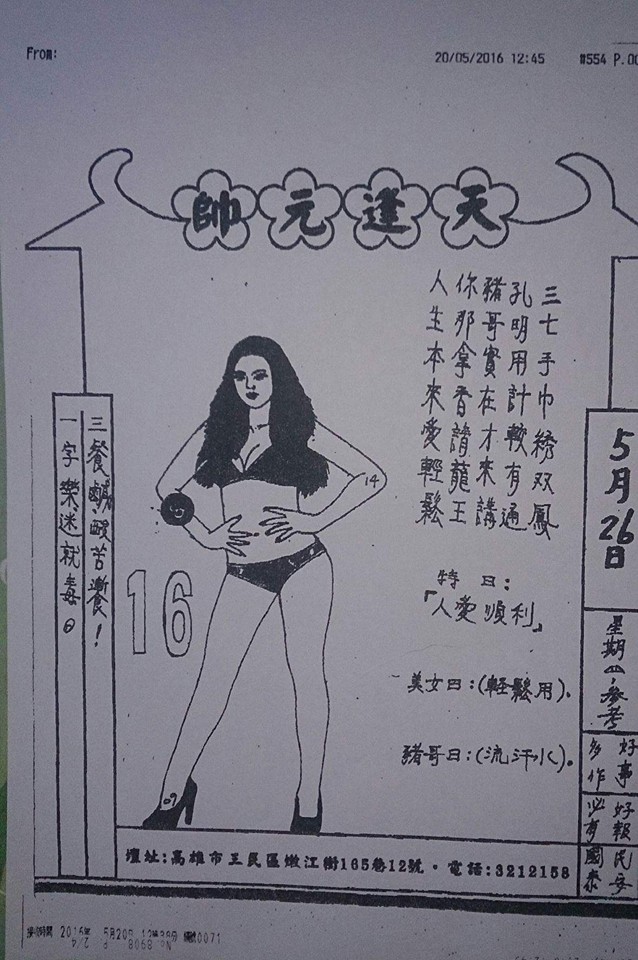 From:
20/05/2016 12:45
#554 P.00
帥元逢天
三七手巾綉双鳳
孔明用計較有通
豬哥實在才來講
你那拿香請龍王
人生本來愛輕鬆
特曰:
「人愛順利」
美女曰:(輕鬆用)。
豬哥曰:(流汗水)。
5月26日
星期四參考
好事多作
好報必有
民安國泰
三餐鹹酸苦澀!
一字樂迷就毒。
14
16
09
壇址:高雄市三民區嫩江街165巷12號。電話:3212158
2016年 5月20日
No. 8908 P. 2/4
0071